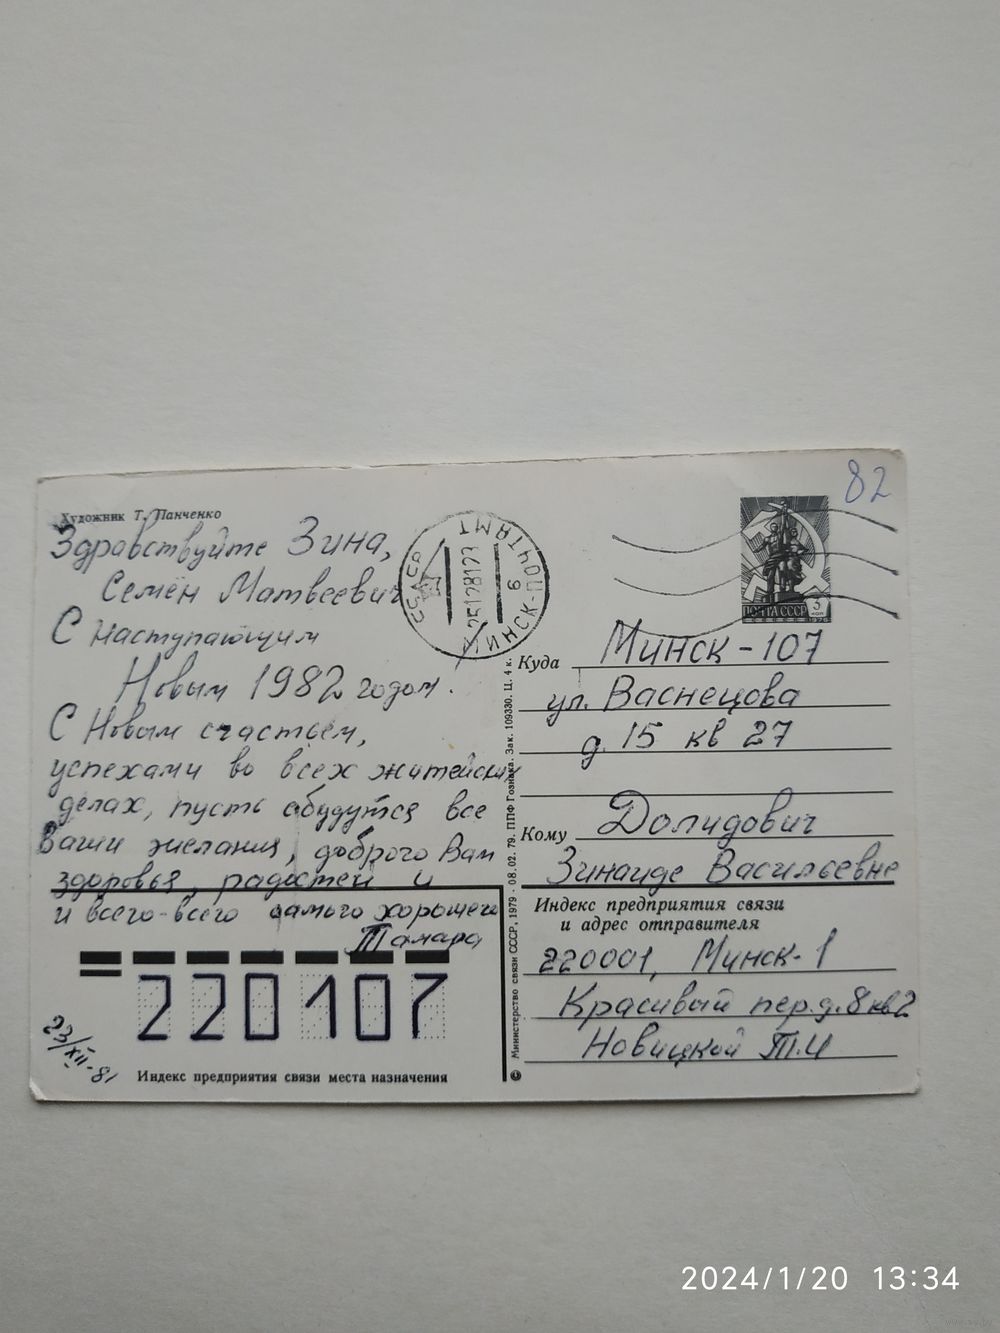 82
Художник Т. Панченко
Здравствуйте Зина,
Семён Матвеевич
С наступающим
Новым 1982 годом.
С Новым счастьем,
успехами во всех житейских
делах, пусть сбудутся все
Ваши желания, доброго Вам
здоровья, радостей и
и всего-всего самого хорошего
Тамара
23/XII-81
220107
Индекс предприятия связи места назначения
СССР
МИНСК-ПОЧТАМТ
6
ПОЧТА СССР
3 КОП
1976
© Министерство связи СССР, 1979 · 08.02.79. ППФ Гознака. Зак. 109330. Ц. 4 к.
Куда Минск-107
ул. Васнецова
д. 15 кв 27
Кому Долидович
Зинаиде Васильевне
Индекс предприятия связи
и адрес отправителя
220001, Минск-1
Красивый пер. д. 8 кв 2
Новицкой Т.И
2024/1/20 13:34